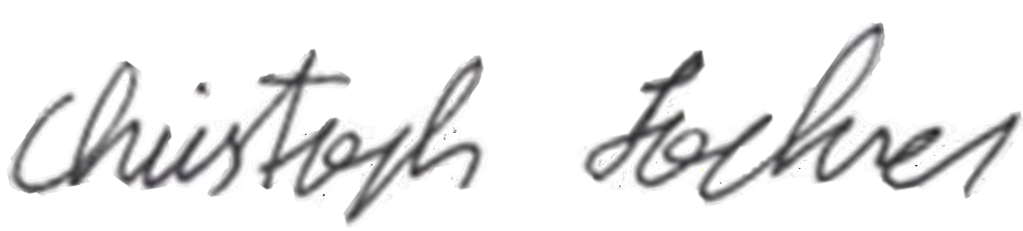 Christoph Lochner